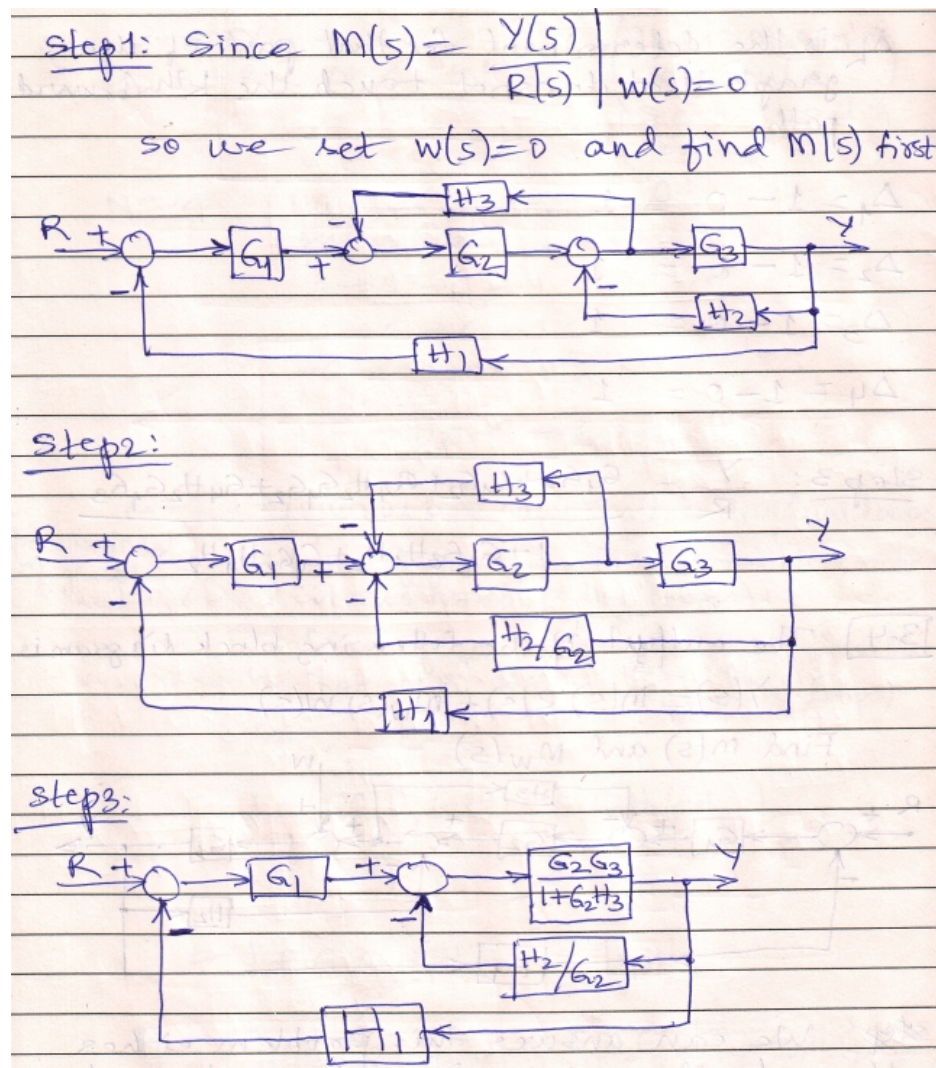 Step1: Since M(s) = Y(s)/R(s) | W(s)=0
so we set W(s)=0 and find M(s) first
H3
R + - G1 + - G2 - G3 Y
H2
H1
Step2:
H3
R + - G1 + - - G2 G3 Y
H2/G2
H1
Step3:
R + - G1 + - G2G3/1+G2H3 Y
H2/G2
H1